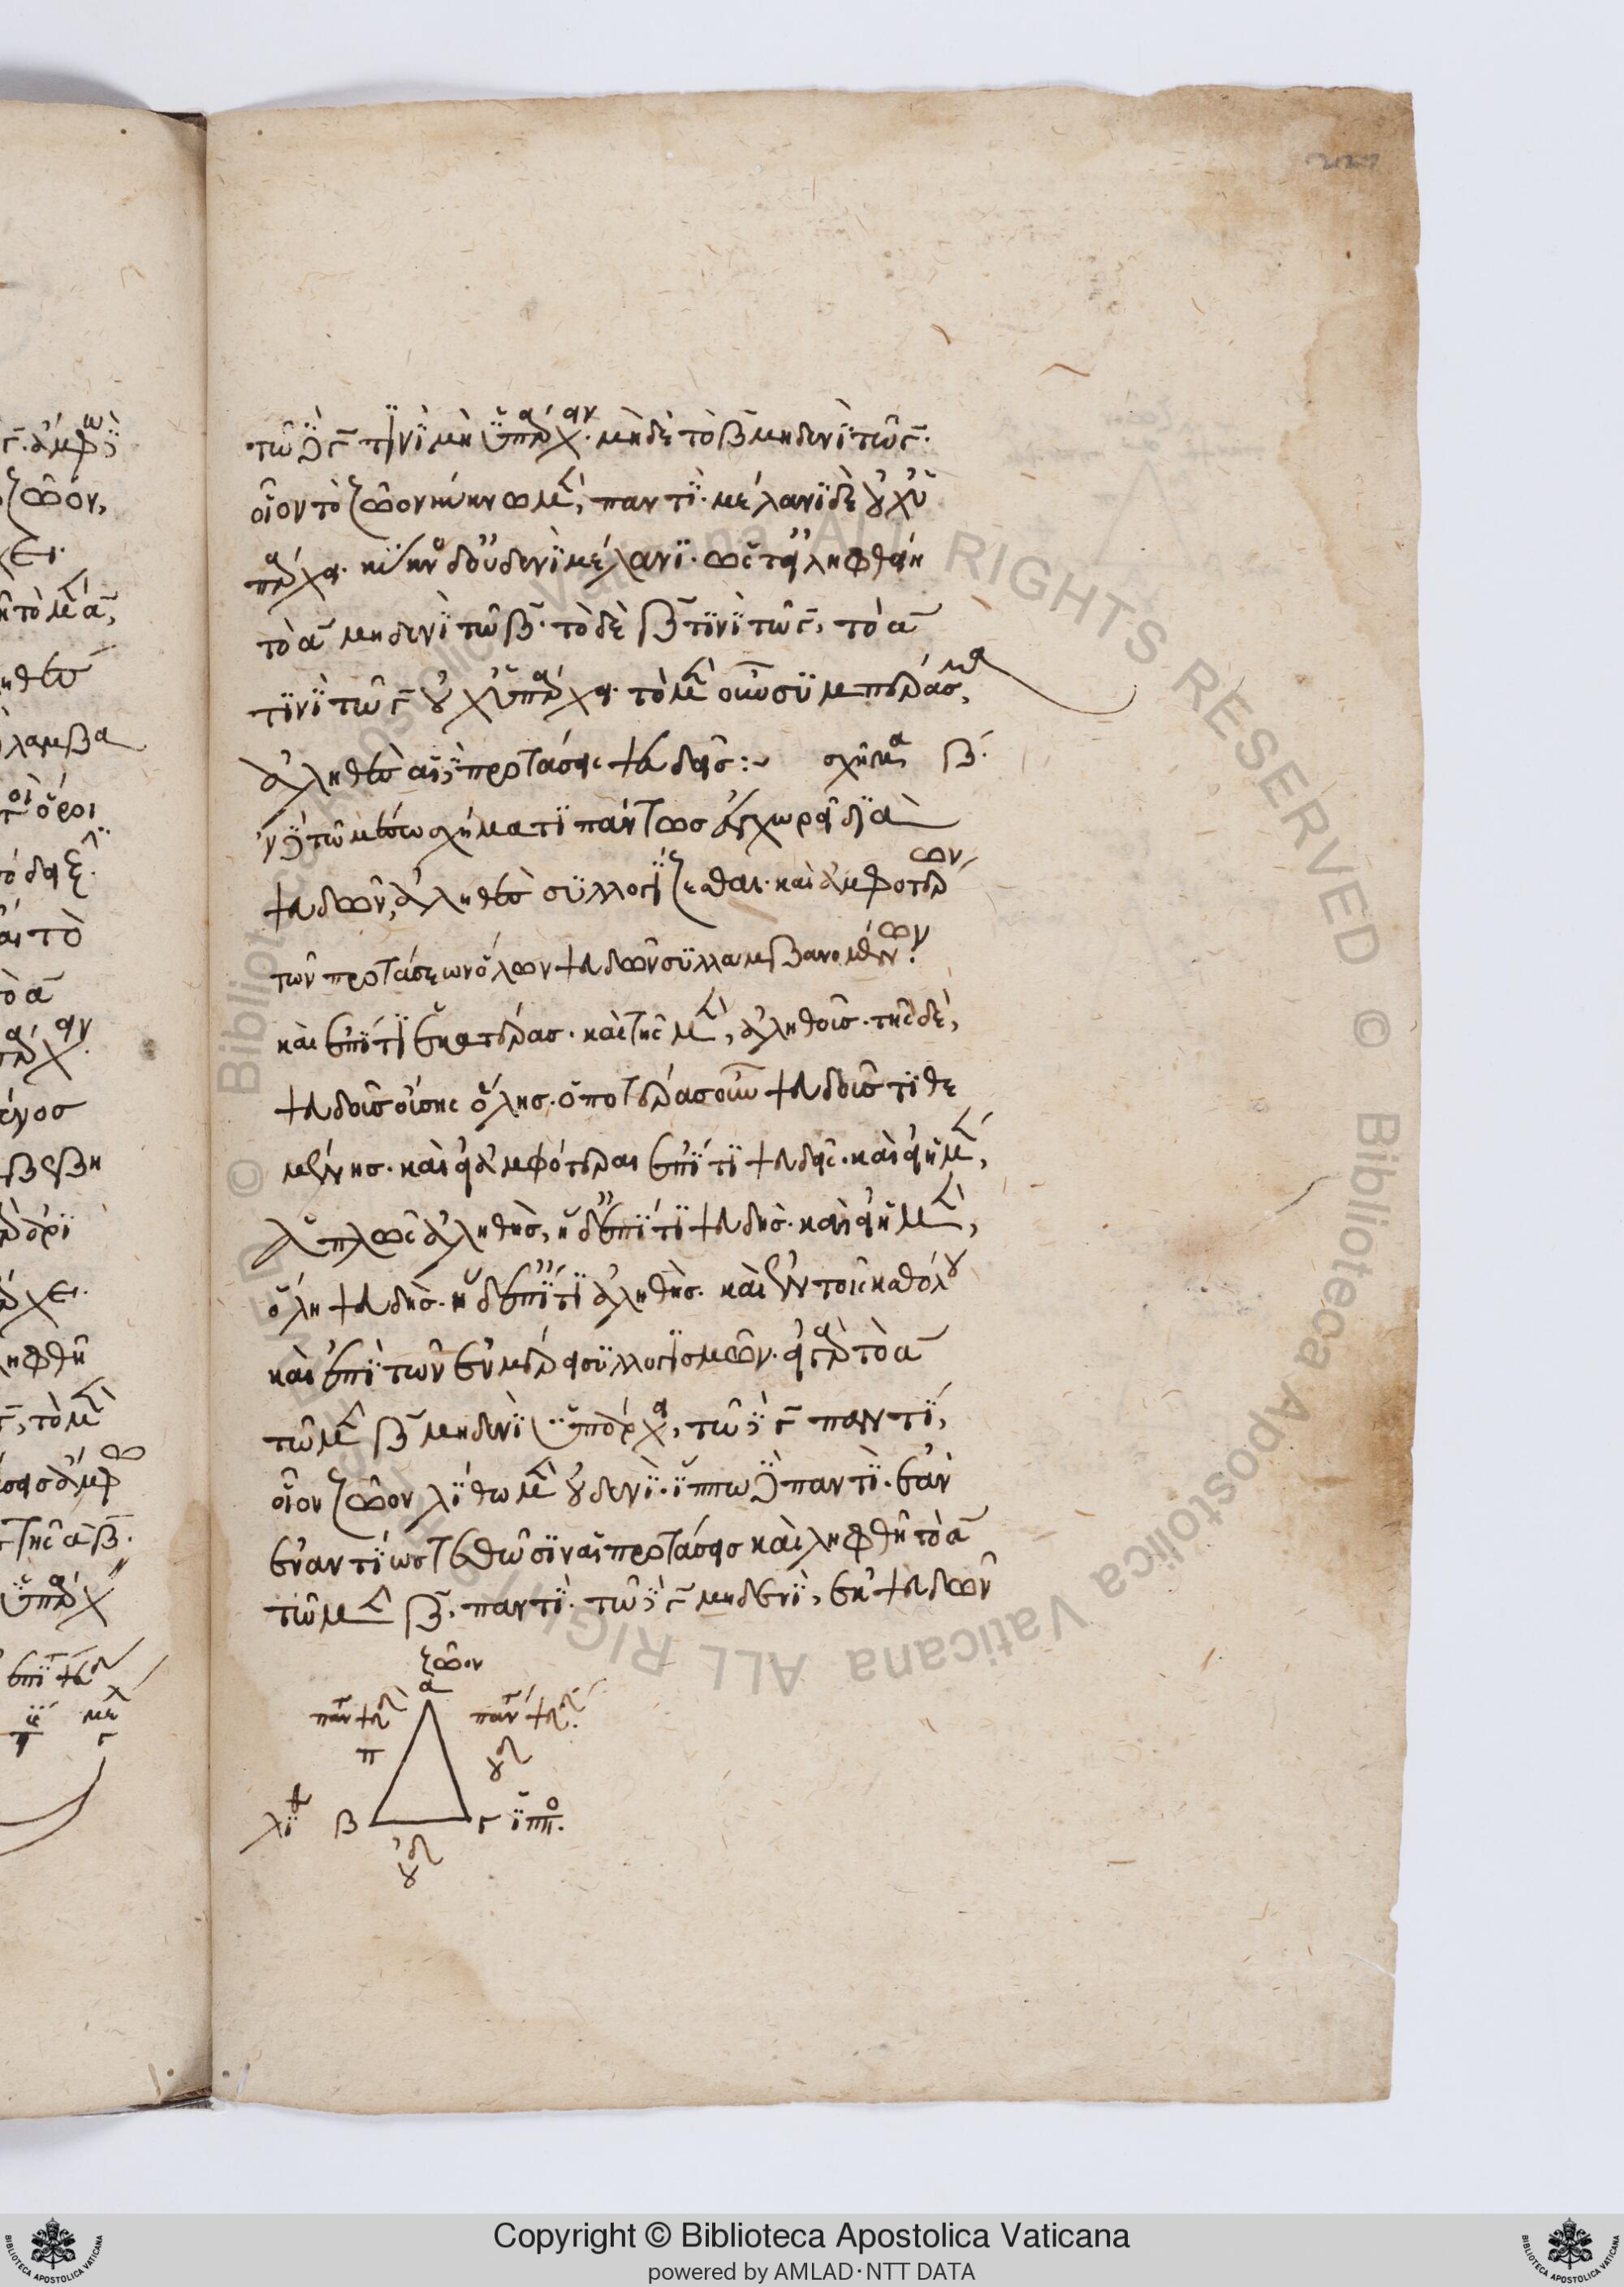 τῶ δὲ γ̄ τϊνῒ μὴ ὑπάρχειν. μηδὲ τὸ β̄ μηδενῒ τῶ γ̄.
οἷον τὸ ζῶον κύκνω μὲν, παντΐ. μέλανϊ δὲ οὐχ ὑ
πάρχει. κύκνος δ' οὐδενῒ μέλανϊ. ὥστ' εἰ ληφθείη
τὸ ᾱ μηδενῒ τῶ β̄. τὸ δὲ β̄ τϊνῒ τῶ γ̄, τὸ ᾱ
τϊνῒ τῶ γ̄ οὐχ ὑπάρχει. τὸ μὲν οὖν συμπέρασμα,
ἀληθές αἱ δὲ προτάσεις ψευδεῖς:~ σχῆμα β΄
ν δὲ τῶ μέσω σχήματϊ πάντως ἐγχωρεῖ δϊὰ
ψευδῶν, ἀληθὲς συλλογΐζεσθαι. καὶ ἀμφοτέρων
τῶν προτάσεων ὅλων ψευδῶν συλλαμβανομένων.
καὶ ἐπΐ τϊ ἑκατέρας. καὶ τῆς μὲν, ἀληθοῦς. τῆς δὲ,
ψευδοῦς οὔσης ὅλης. ὁποτέρας οὖν ψευδοῦς τϊθε
μένης. καὶ εἰ ἀμφότεραι ἐπΐ τϊ ψευδεῖς. καὶ εἰ ἡ μὲν,
ἁπλῶς ἀληθὴς, ἡ δ' ἐπΐ τϊ ψευδής. καὶ εἰ ἡ μὲν,
ὅλη ψευδὴς. ἡ δ' ἐπΐ τϊ ἀληθὴς. καὶ ἐν τοῖς καθόλου
καὶ ἐπῒ τῶν ἐν μέρει συλλογϊσμῶν. εἰ γὰρ τὸ ᾱ
τῶ μὲν β̄ μηδενῒ ὑπάρχει, τῶ δὲ γ̄ παντΐ,
οἷον ζῶον λΐθω μὲν οὐδενΐ. ἵππω δὲ παντΐ. ἐὰν
ἐναντΐως τεθῶσϊν αἱ προτάσεις καὶ ληφθῆ τὸ ᾱ
τῶ μὲν β̄, παντΐ. τῶ δὲ γ̄ μηδενΐ, ἐκ ψευδῶν
ζῶον
α
παντ ψευδ παντ ψευδ
π οὐδ
λιθ β γ ἵππο.
οὐδ